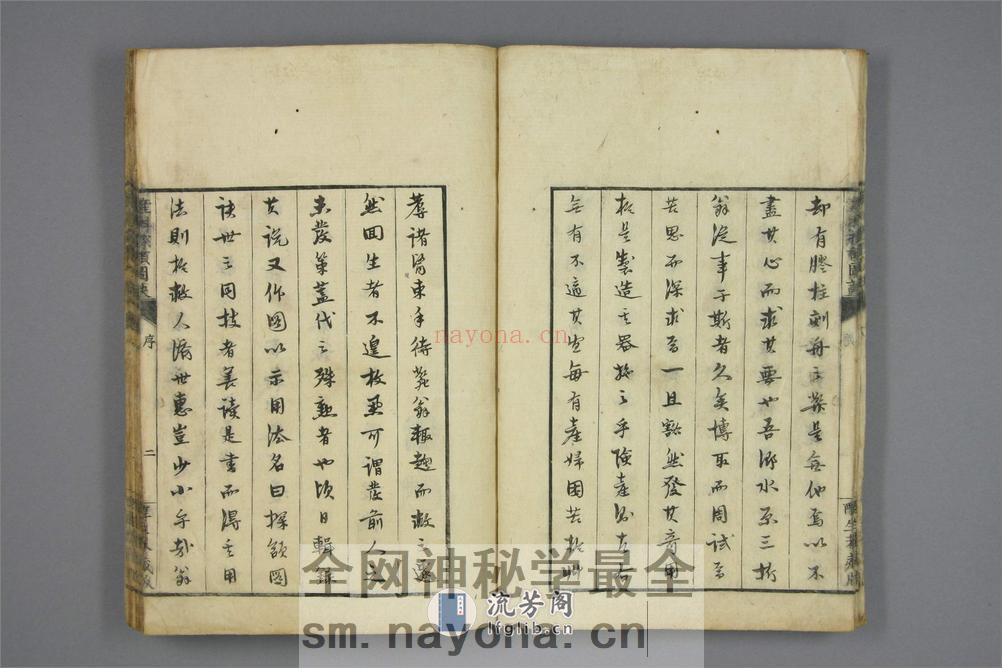 却有膠柱刻舟之弊是無他焉以不
盡其心而求其要也吾師水原三折
翁從事于斯者久矣博取而周試焉
苦思而深求焉一旦豁然發其奇用
於是製造之器施之手險產治方
無有不適其宜每有產婦困苦
群諸醫束手待斃翁輒趣而救之還
然回生者不遑枚舉可謂發前人之
未發策蓋代之殊勲者也頃日輯錄
其說又作圖以示用法名曰探頷圖
訣世之同技者善讀是書而得之用
法則於救人濟世惠豈少小乎哉翁
序
二
nayona.cn
全网神秘学最全
流芳阁
lfglib.cn
sm.nayona.cn